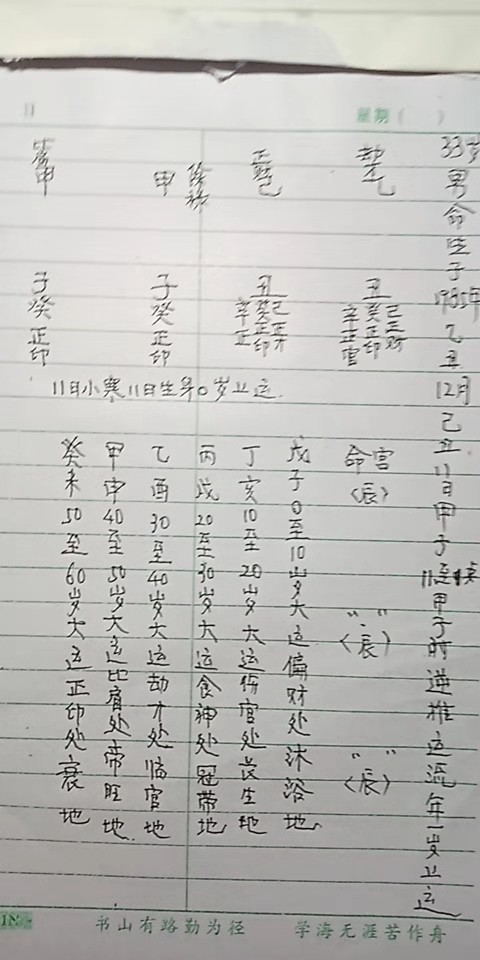 星期（　　）
33岁男命生于1985年乙丑12月己丑11日甲子11至1点甲子时逆推运流年一岁上运
劫才乙
丑
己正财
癸正印
辛正官
命宫
〈辰〉
〃〃
〈辰〉
〃〃
〈辰〉
正财己
丑
己正才
癸正印
辛正官
甲
子癸正印
甲
子癸正印
11日小寒11日生算0岁上运.
戊子0至10岁大运偏财处沐浴地
丁亥10至20岁大运伤官处长生地
丙戌20至30岁大运食神处冠带地
乙酉30至40岁大运劫才处临官地
甲申40至50岁大运比肩处帝旺地
癸未50至60岁大运正印处衰地
书山有路勤为径　学海无涯苦作舟